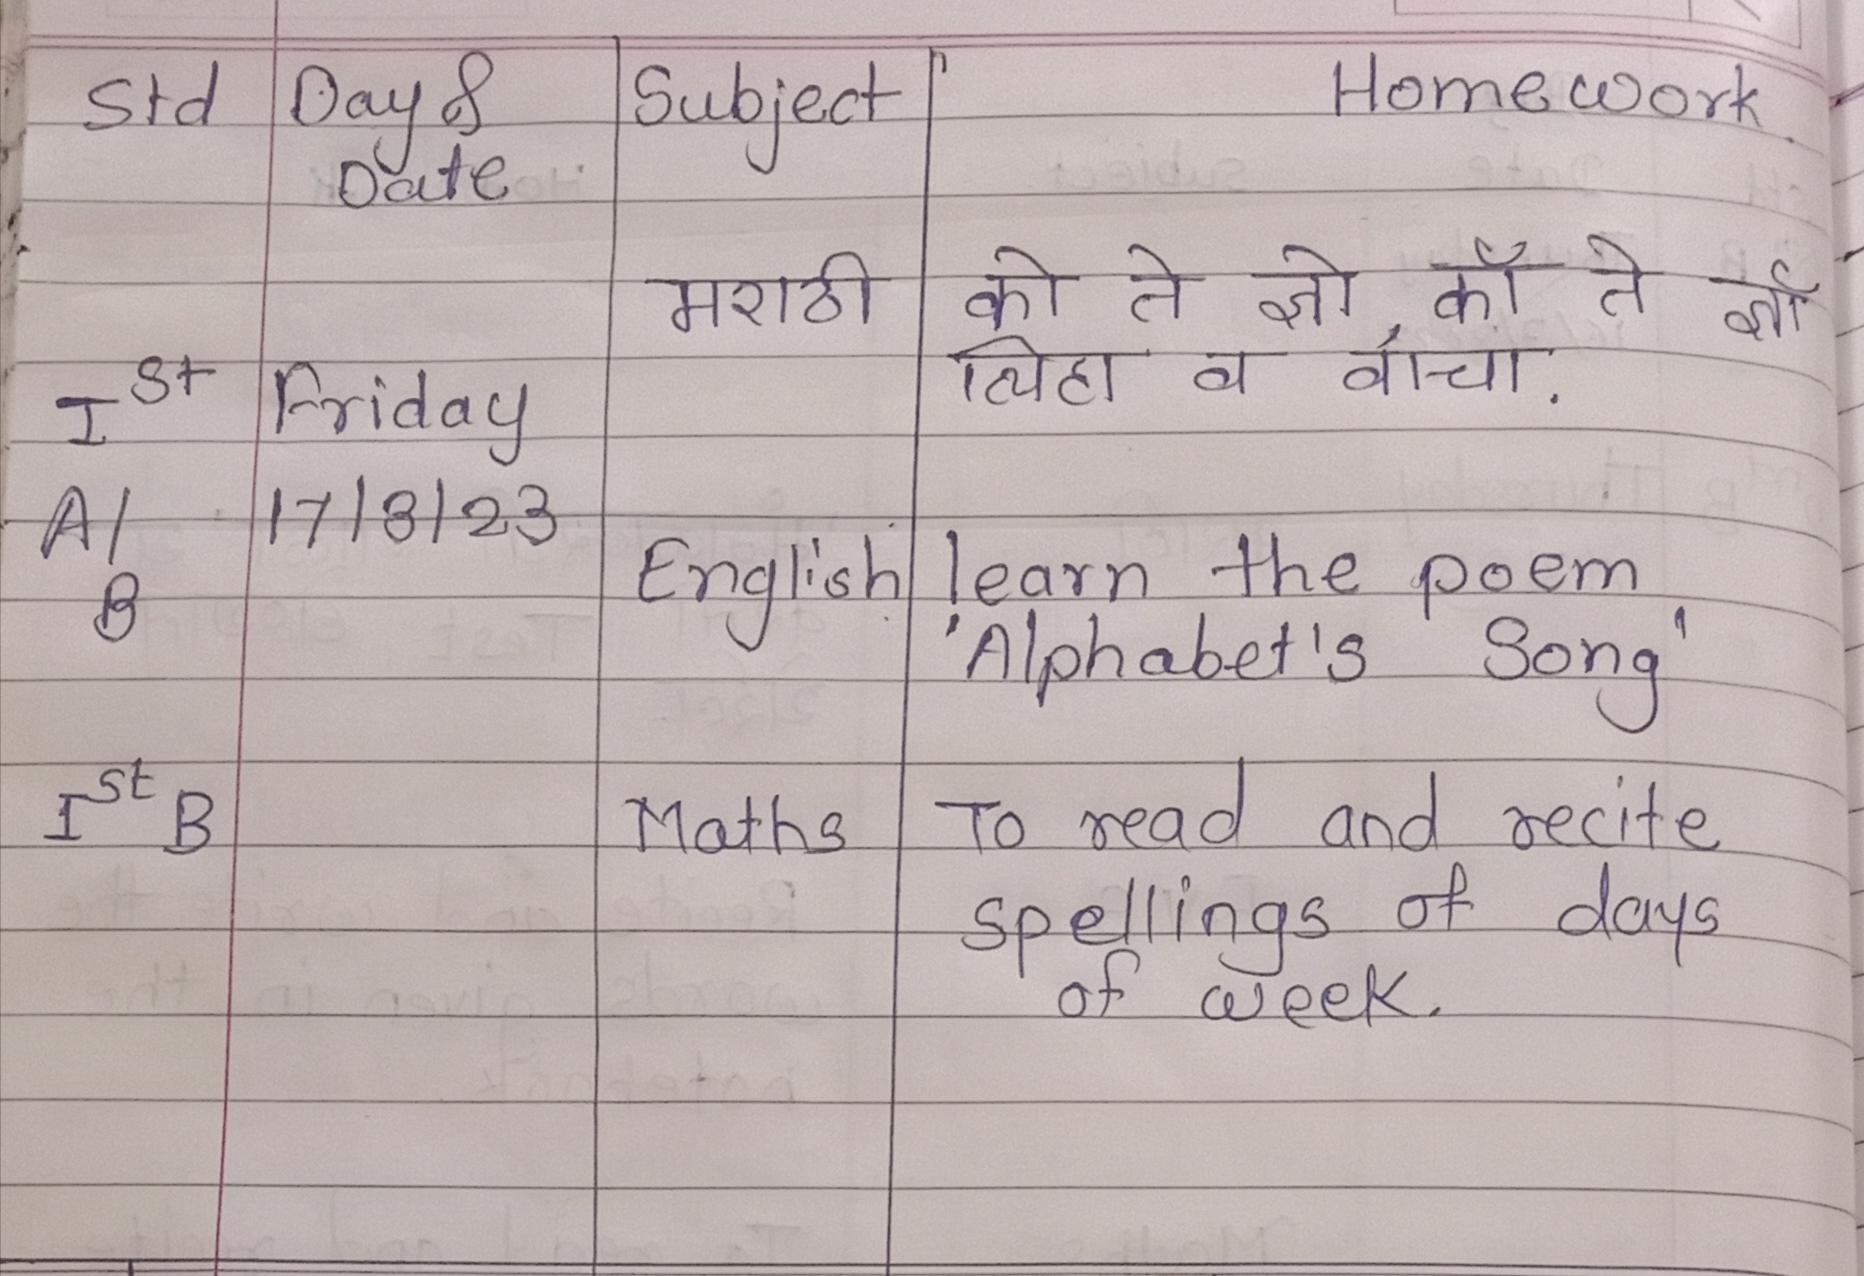 Std Day & Subject Homework
Date
मराठी को ते ज्ञो, कॉ ते ज्ञॉ
Ist Friday लिहा व वाचा.
A/ 17/3/23
B English learn the poem
'Alphabet's Song'
Ist B Maths To read and recite
spellings of days
of week.